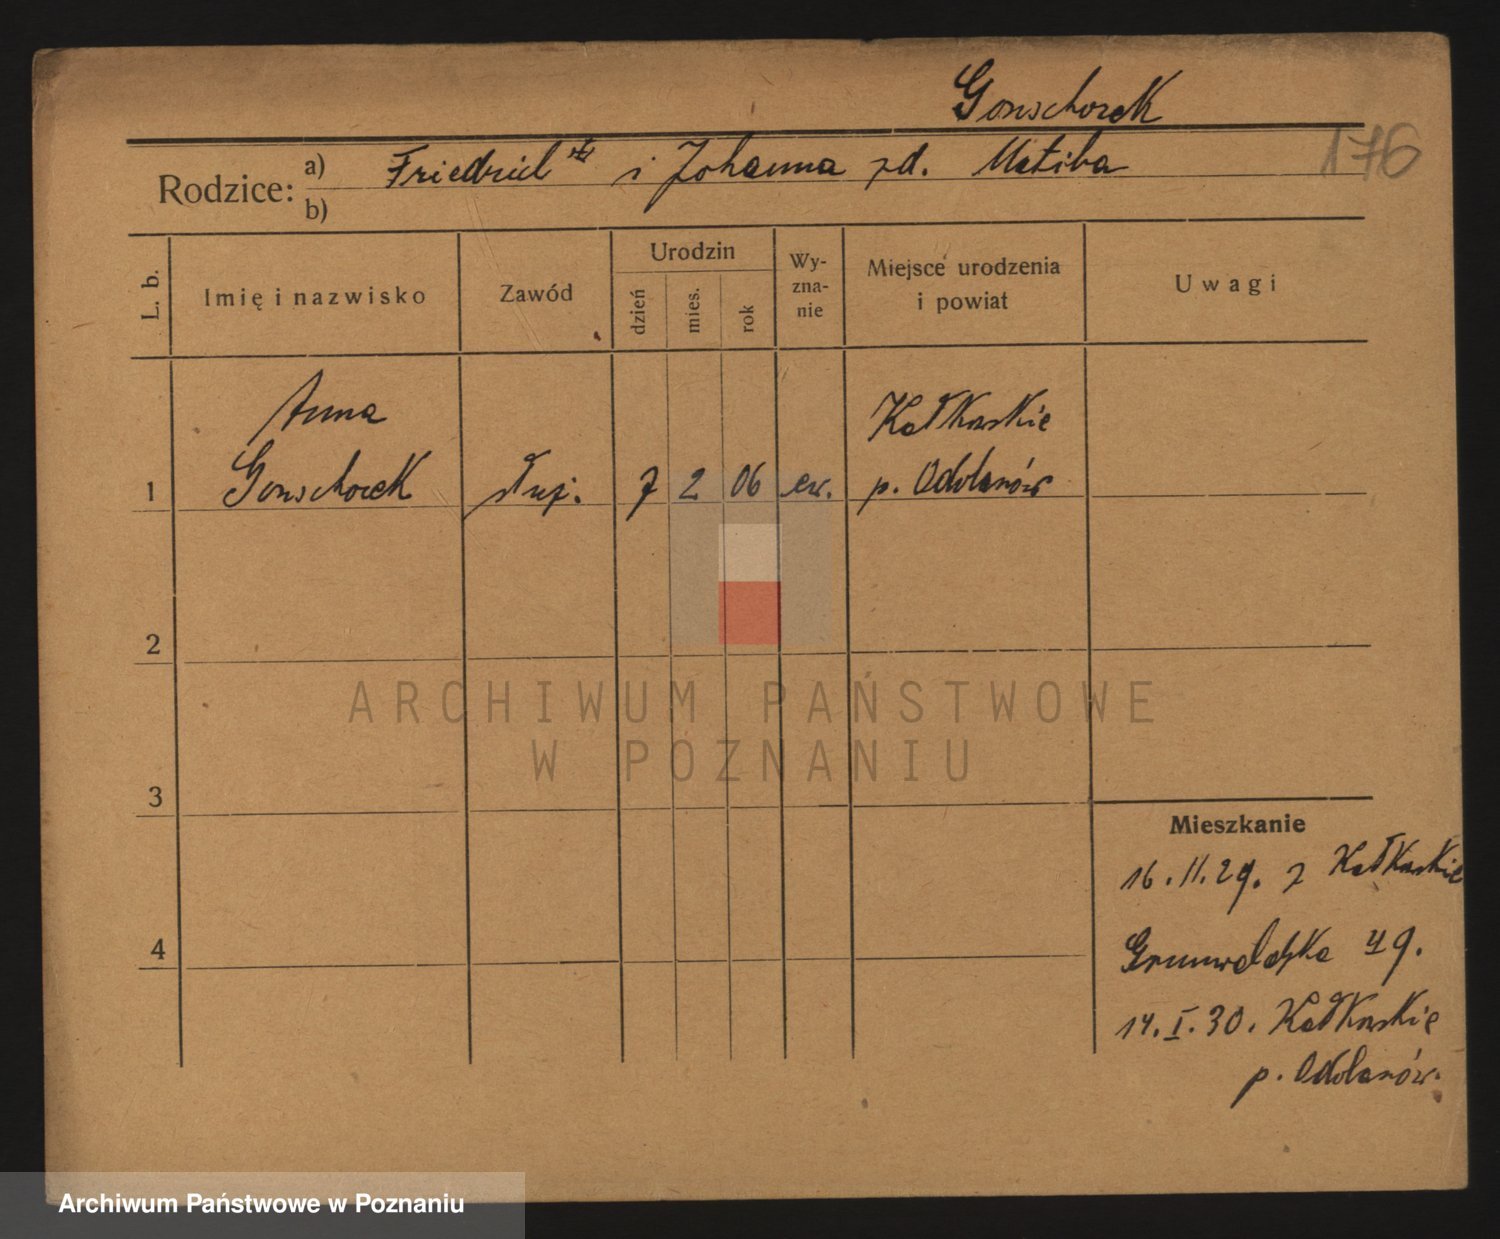 Gonschorek
176
Rodzice: a) Friedrich i Johanna zd. Matiba
b)
L. b. Imię i nazwisko Zawód Urodzin dzień mies. rok Wy-zna-nie Miejsce urodzenia i powiat Uwagi
Anna Kałkowskie
1 Gonschorek służ. 7 2 06 ew. p. Odolanów
2
ARCHIWUM PAŃSTWOWE
W POZNANIU
3
Mieszkanie
16.11.29. z Kałkowskie
4 Grunwaldzka 49.
14.I.30. Kałkowskie
p. Odolanów.
Archiwum Państwowe w Poznaniu